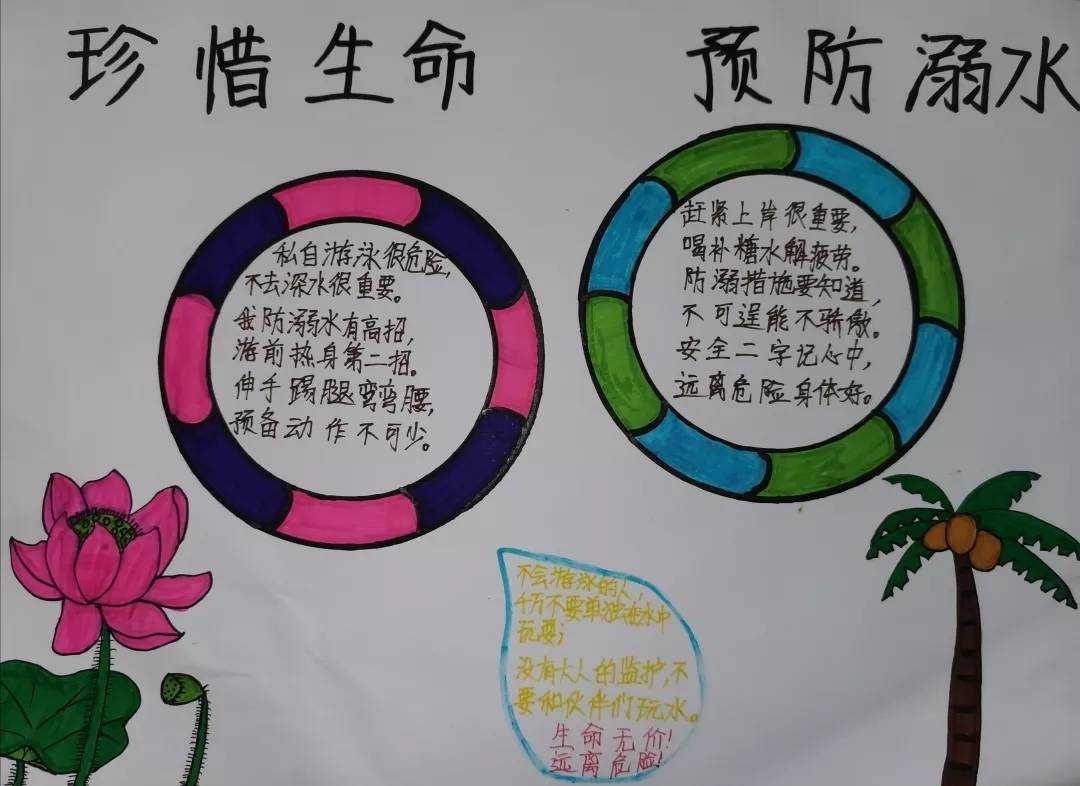 珍惜生命 预防溺水
私自游泳很危险,
不去深水很重要。
我防溺水有高招,
游前热身第二招。
伸手踢腿弯弯腰,
预备动作不可少。
赶紧上岸很重要,
喝补糖水解疲劳。
防溺措施要知道,
不可逞能不骄傲。
安全二字记心中,
远离危险身体好。
不会游泳的人,
千万不要单独在水中
玩耍;
没有大人的监护,不
要和伙伴们玩水。
生命无价!
远离危险!